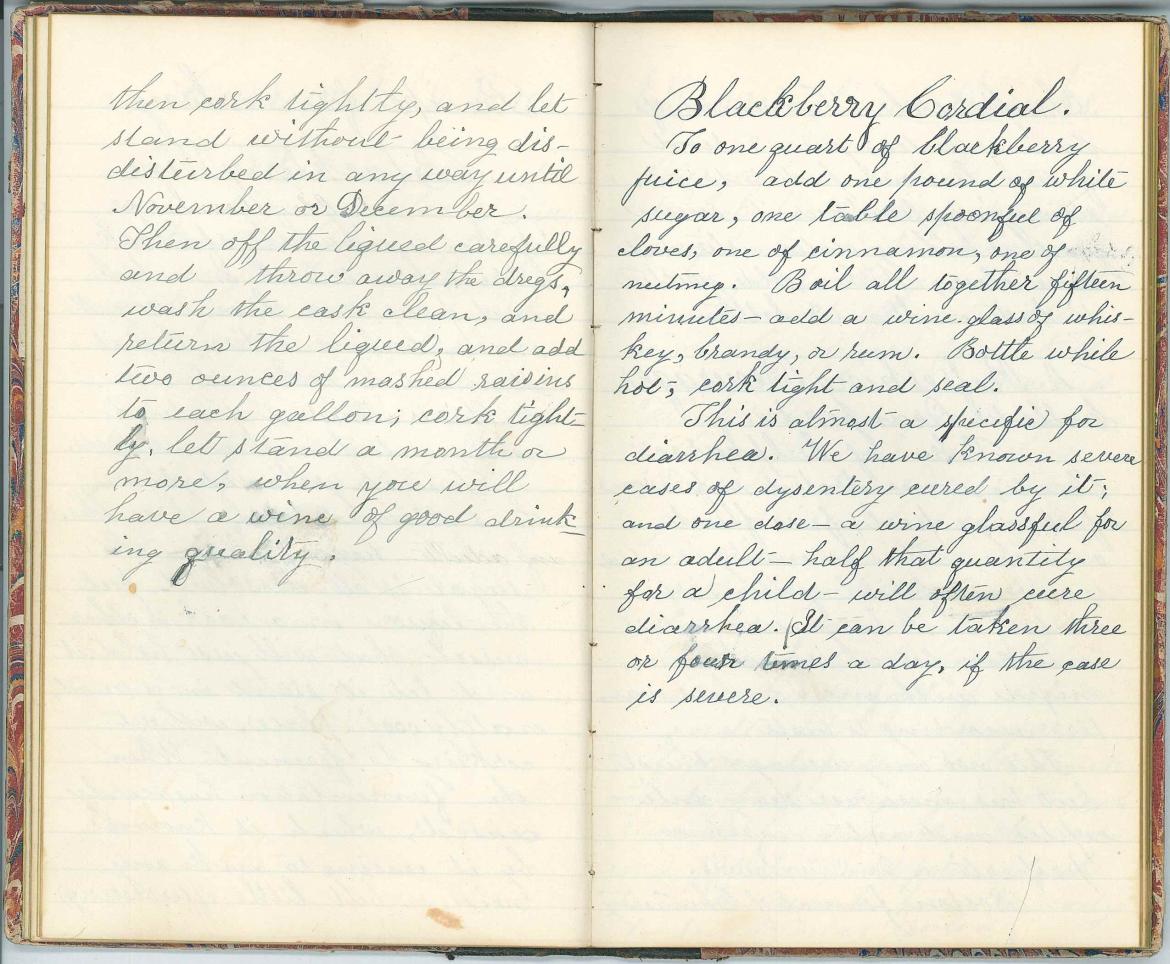 then cork tightly, and let
stand without being dis-
disturbed in any way until
November or December.
Then off the liqued carefully
and throw away the dregs,
wash the cask clean, and
return the liqued, and add
two ounces of mashed raisins
to each gallon; cork tight-
ly, let stand a month or
more, when you will
have a wine of good drink-
ing quality.
Blackberry Cordial.
To one quart of blackberry
juice, add one pound of white
sugar, one table spoonful of
cloves, one of cinnamon, one of
nutmeg. Boil all together fifteen
minutes - add a wine-glass of whis-
key, brandy, or rum. Bottle while
hot, cork tight and seal.
This is almost a specific for
diarrhea. We have known severe
cases of dysentery cured by it;
and one dose - a wine glassful for
an adult - half that quantity
for a child - will often cure
diarrhea. It can be taken three
or four times a day, if the case
is severe.